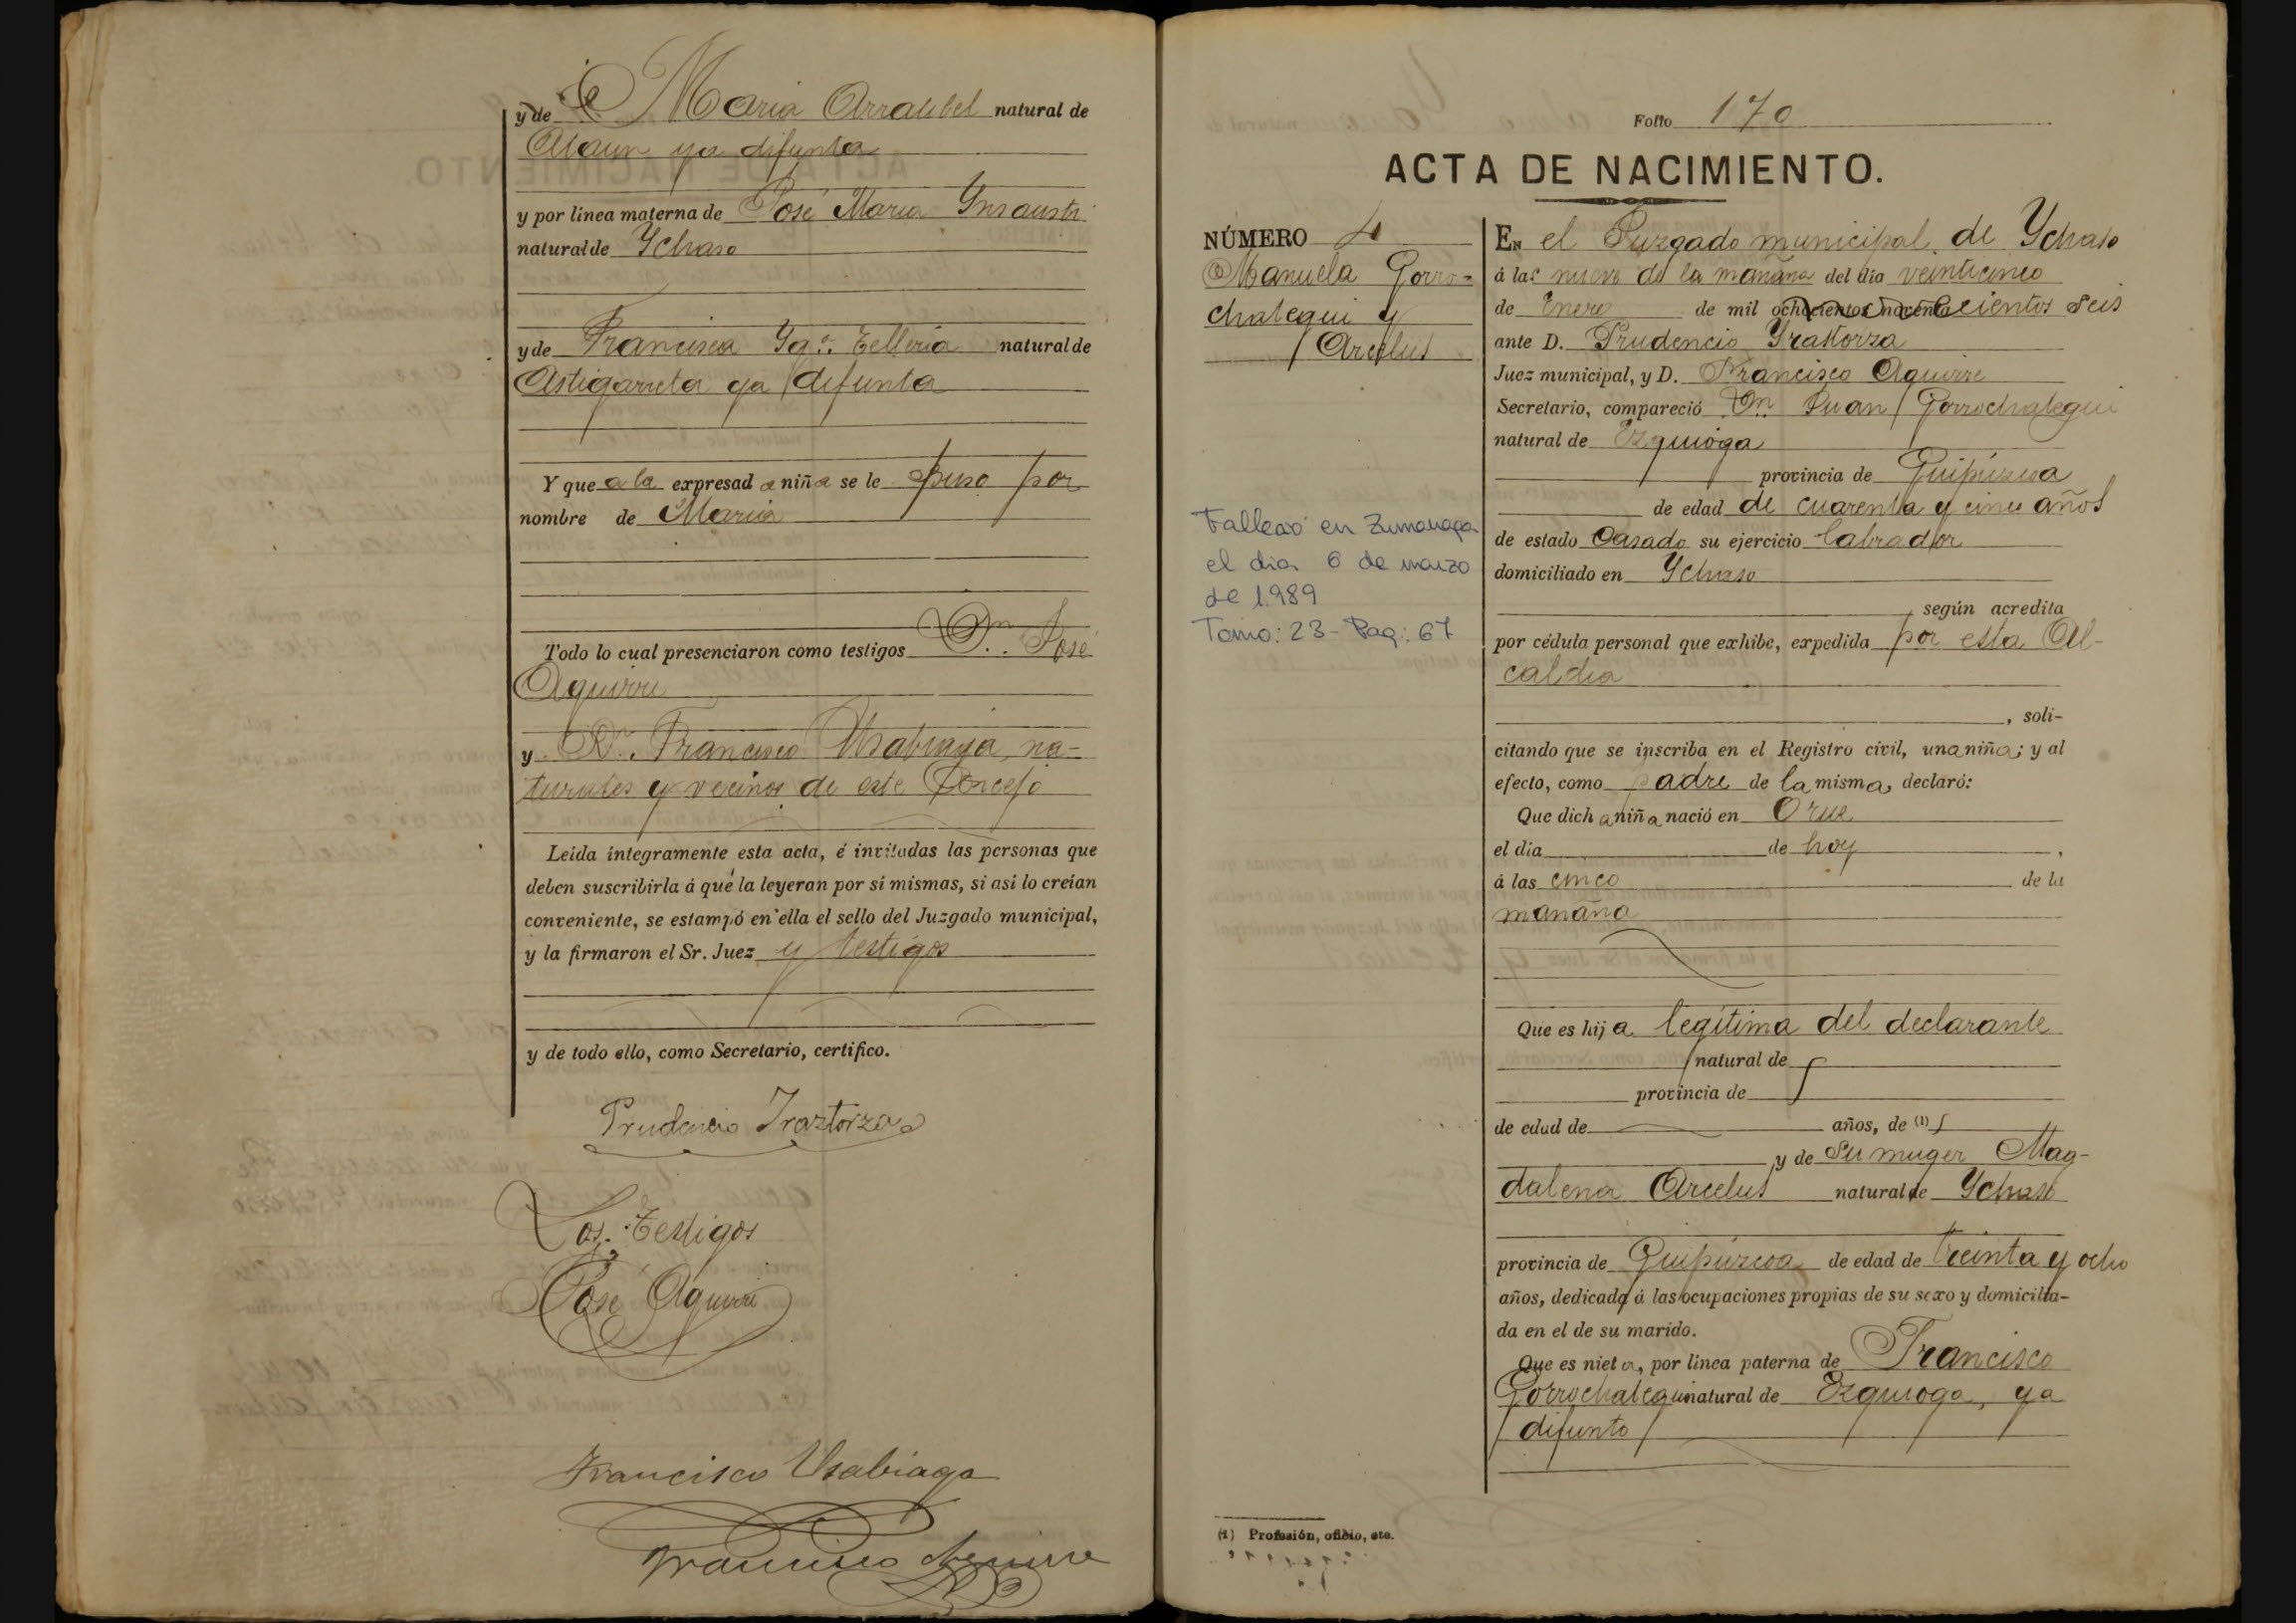 y de D.ª Maria Arratibel natural de
Ataun ya difunta
y por linea materna de José Maria Ynsausti
natural de Ychaso
y de Francisca Yg.ª Telleria natural de
Astigarreta ya difunta
Y que a la expresad a niña se le puso por
nombre de Maria
Todo lo cual presenciaron como testigos Dn. José
Aguirre
y Dn. Francisco Usabiaga, na-
turales y vecinos de este Concejo
Leída íntegramente esta acta, é invitadas las personas que
deben suscribirla á que la leyeran por sí mismas, si así lo creían
conveniente, se estampó en ella el sello del Juzgado municipal,
y la firmaron el Sr. Juez y testigos
y de todo ello, como Secretario, certifico.
Prudencio Iraztorza
Los Testigos
José Aguirre
Francisco Usabiaga
Francisco Aguirre
Folio 170
ACTA DE NACIMIENTO.
NÚMERO 4
Manuela Gorro-
chategui y
Arcelus
Falleció en Zumarraga
el día 6 de marzo
de 1.989
Tomo: 23 - Pag.: 67
EN el Juzgado municipal de Ychaso
á las nueve de la mañana del día veinticinco
de Enero de mil ochocientos noventa cientos seis
ante D. Prudencio Yrastorza
Juez municipal, y D. Francisco Aguirre
Secretario, compareció Dn. Juan Gorrochategui
natural de Ezquioga
provincia de Guipúzcoa
de edad de cuarenta y cinco años
de estado Casado su ejercicio labrador
domiciliado en Ychaso
según acredita
por cédula personal que exhibe, expedida por esta Al-
caldia
, soli-
citando que se inscriba en el Registro civil, una niña; y al
efecto, como padre de la misma, declaró:
Que dich a niña nació en Orue
el día de hoy,
á las cinco de la
mañana
Que es hij a legítima del declarante
natural de
provincia de
de edad de años, de (1)
y de su muger Mag-
dalena Arcelus natural de Ychaso
provincia de Guipúzcoa de edad de treinta y ocho
años, dedicada á las ocupaciones propias de su sexo y domicilia-
da en el de su marido.
Que es niet a, por línea paterna de Francisco
Gorrochategui natural de Ezquioga, ya
difunto
(1) Profesión, oficio, etc.